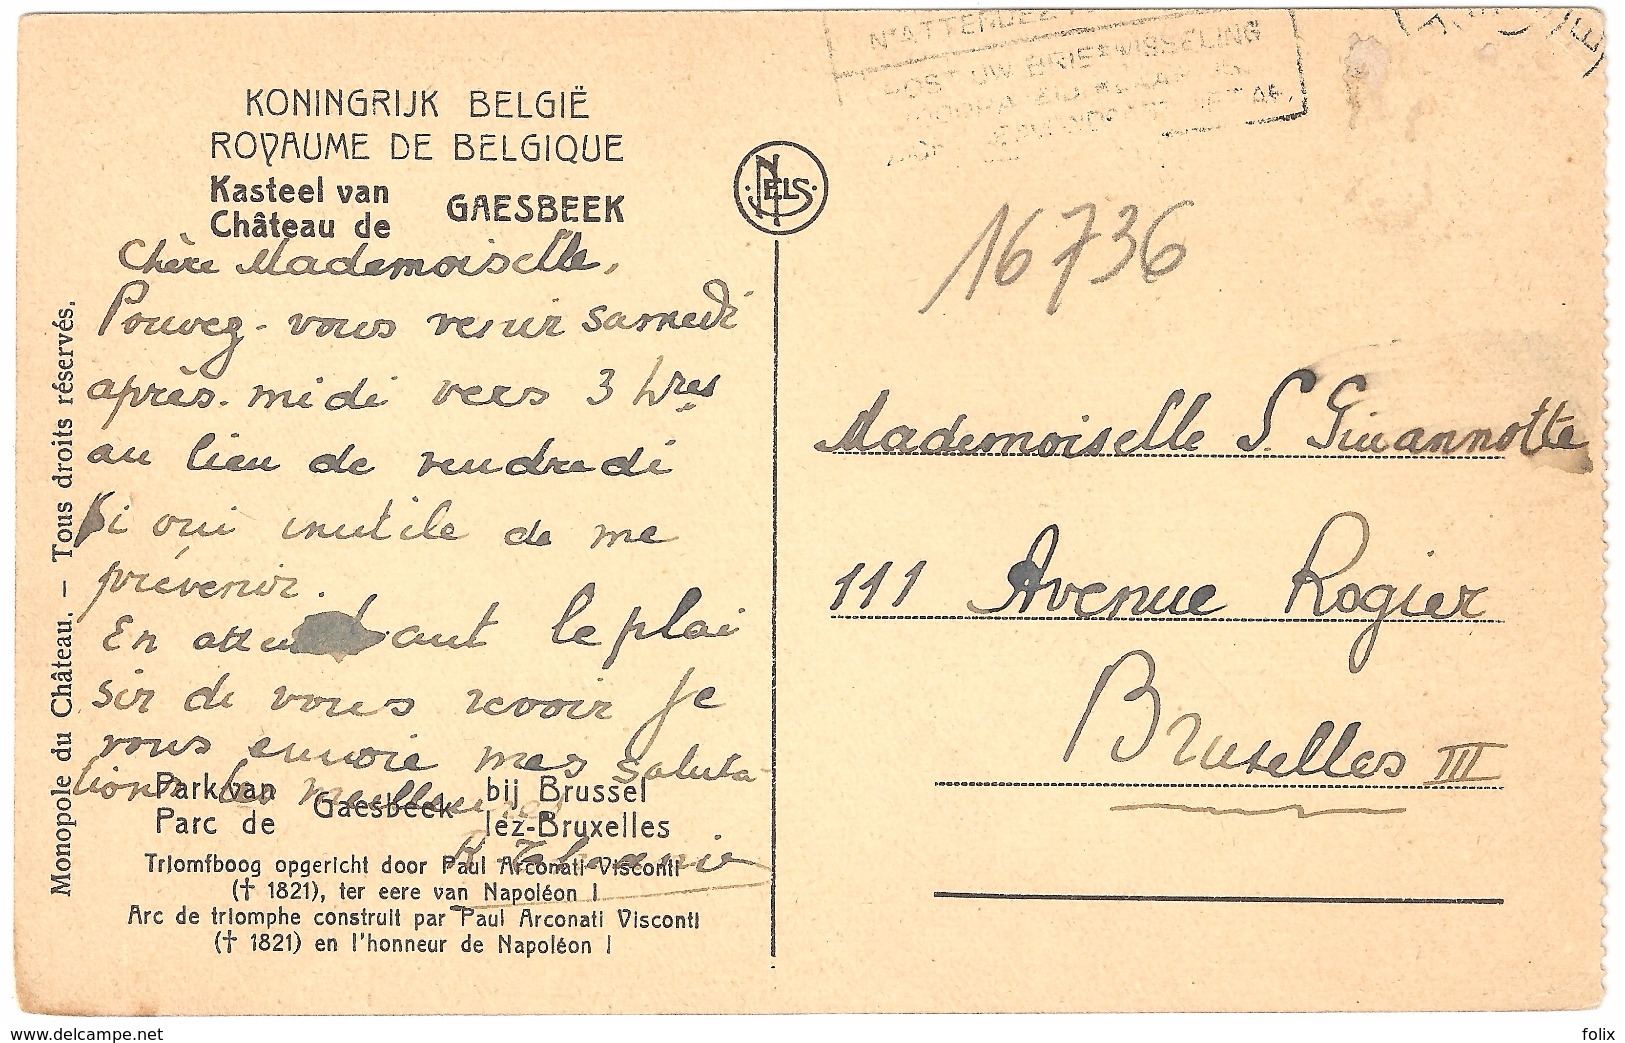 N'ATTENDEZ
POST UW BRIEFWISSELING
KONINGRIJK BELGIË
ROYAUME DE BELGIQUE
Kasteel van
Château de
GAESBEEK
NELS
16736
Chère Mademoiselle,
Pouvez-vous venir samedi
après-midi vers 3 hres
au lieu de vendredi
Si oui inutile de me
prévenir.
En atten dant le plai
sir de vous revoir je
vous envoie mes saluta-
tions les meilleures
Park van
Parc de
Gaesbeek
bij Brussel
lez-Bruxelles
Triomfboog opgericht door Paul Arconati-Visconti
(† 1821), ter eere van Napoléon I
Arc de triomphe construit par Paul Arconati Visconti
(† 1821) en l'honneur de Napoléon I
Monopole du Château. – Tous droits réservés.
Mademoiselle S. Giuannotte
111 Avenue Rogier
Bruxelles III
www.delcampe.net
folix